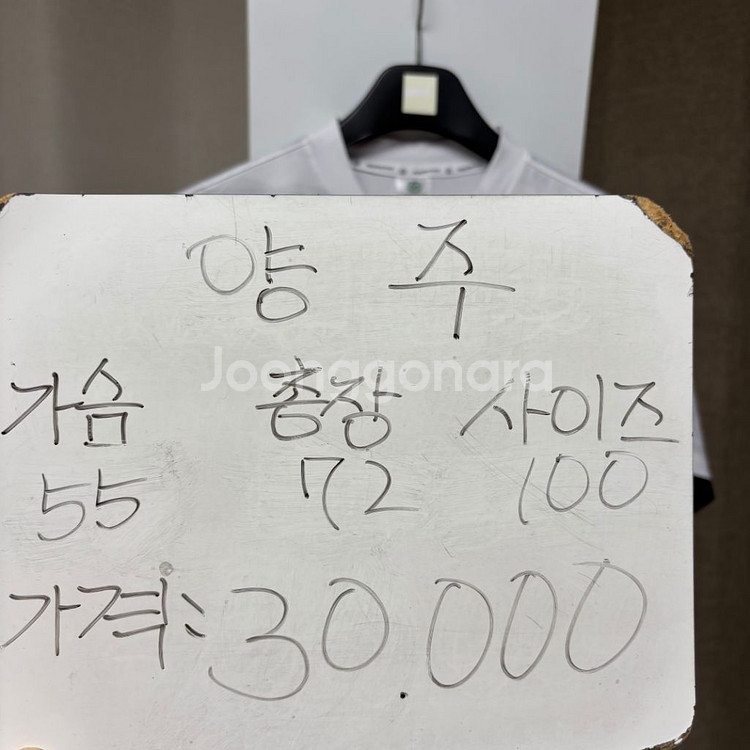 양 주
Joonggonara
가슴 총장 사이즈
55 72 100
가격: 30.000